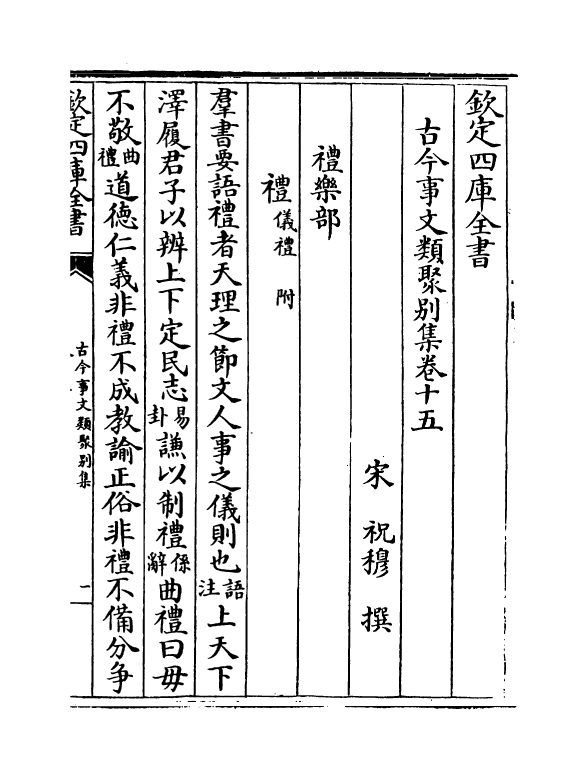 欽定四庫全書
古今事文類聚別集卷十五
宋 祝穆 撰
禮樂部
禮儀禮 附
羣書要語禮者天理之節文人事之儀則也語注上天下
澤履君子以辨上下定民志易卦謙以制禮係辭曲禮曰毋
不敬曲禮道德仁義非禮不成教諭正俗非禮不備分爭
欽定四庫全書
古今事文類聚別集
二